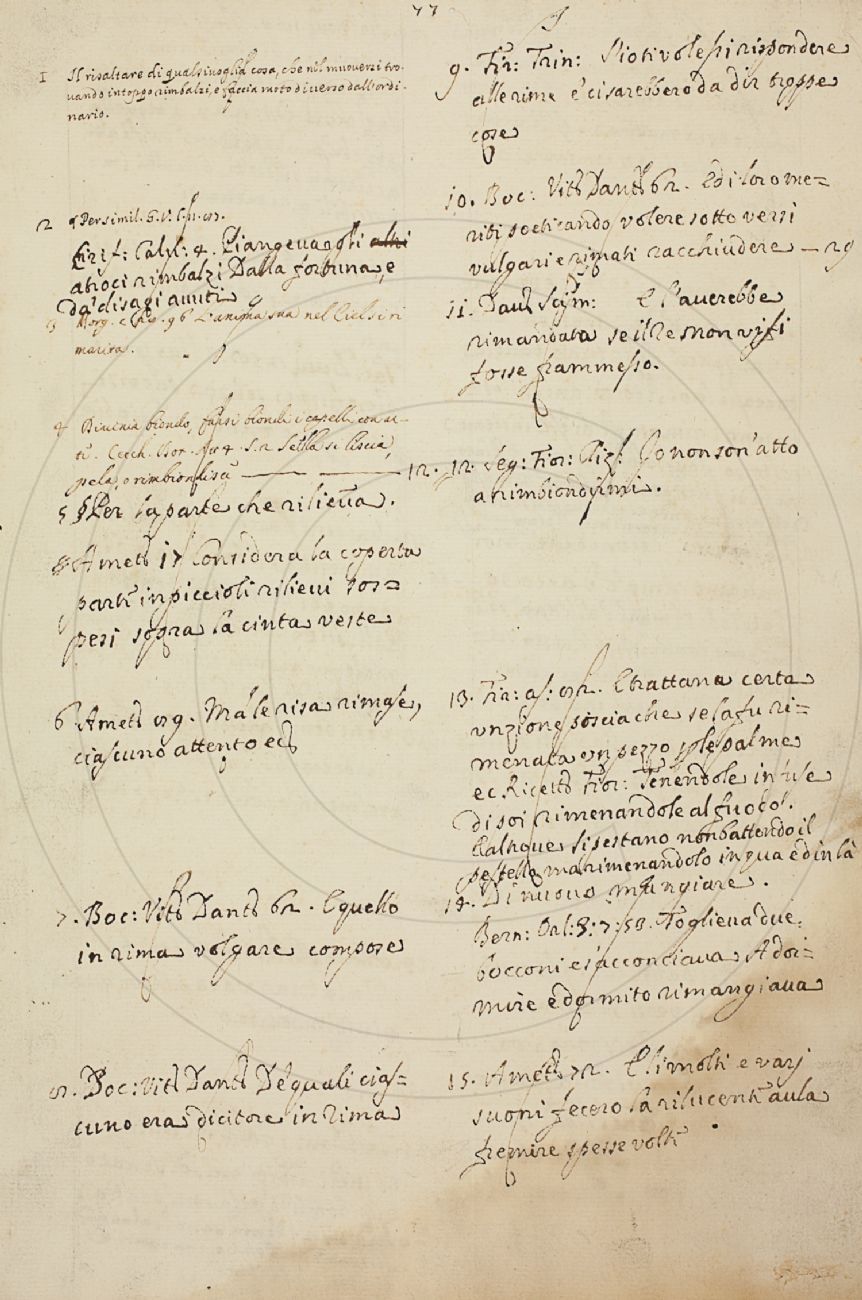 77
1 Il risaltare di qualsivoglia cosa, che nel muoversi tro-
vando intoppo rimbalzi, e faccia moto diverso dall'ordi-
nario.
2 Per simil.
Cirif: Calu: 4. Piangeua gli altri
atroci rimbalzi Dalla fortuna, e
da' disagi auuti
3 Morg. L'anima sua nel Ciel si ri
marira.
4 Diuenir biondo, farsi biondi i capelli con ar-
te. Cecch. Se ella si liscia,
pela, o rimbiondisca — — 12.
5 Per la parte che rilieua.
Ameto 17 Considera la coperta
parte in piccioli rilieui sos=
pesi sopra la cinta veste
6 Ameto 29. Ma le risa rimase,
ciascuno attento ec
7. Boc: Vita Dante 62. E quello
in rima volgare compose
8. Boc: Vita Dante De' quali cias=
cuno era dicitore in rima
9. Fir: Trin: S'io ti volessi rispondere
alle rime e' ci sarebbero da dir troppe
cose
10. Boc: Vita Dante 62. Ed i loro me=
riti poeticando volere sotto versi
vulgari e rimati racchiudere — 29
11. Dau: Scism: E l'auerebbe
rimandata se il Re non vi si
fosse frammesso.
12. Seg: Fior: Cliz: Io non son' atto
a rimbiondirmi.
13. Fir: as: 92. E trattane certa
vnzione poscia che se la fu ri=
menata un pezzo per le palme
ec Ricett: Fior: Tenendole infuse
di poi rimenandole al fuoco.
E altroue si pestano non battendo il
pestello ma rimenandolo in qua ed in là
14. Di nuouo mangiare.
Bern: Orl: 3: 7: 59. Toglieua due
bocconi e s'acconciaua A dor=
mire e dormito rimangiaua
15. Ameto 72. E li molti e varj
suoni fecero la rilucente aula
fremire spesse volte